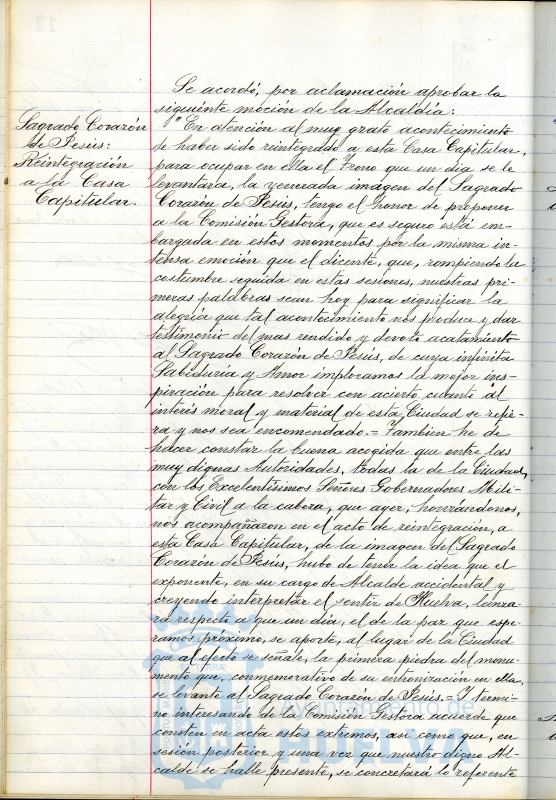 Se acordó, por aclamación aprobar la
siguiente moción de la Alcaldía:
Sagrado Corazón
de Jesús:
Reintegración
a la Casa
Capitular.
"En atención al muy grato acontecimiento
de haber sido reintegrado a esta Casa Capitular,
para ocupar en ella el Trono que un dia se le
levantara, la venerada imagen del Sagrado
Corazón de Jesús, tengo el honor de proponer
a la Comisión Gestora, que es seguro está em-
bargada en estos momentos por la misma in-
tensa emoción que el dicente, que, rompiendo la
costumbre seguida en estas sesiones, nuestras pri-
meras palabras sean hoy para significar la
alegría que tal acontecimiento nos produce y dar
testimonio del mas rendido y devoto acatamiento
al Sagrado Corazón de Jesús, de cuya infinita
Sabiduría y Amor imploramos la mejor ins-
piración para resolver con acierto cuanto al
interés moral y material de esta Ciudad se refie-
ra y nos sea encomendado.= Tambien he de
hacer constar la buena acogida que entre las
muy dignas Autoridades, todas la de la Ciudad,
con los Excelentísimos Señores Gobernadores Mili-
tar y Civil a la cabeza, que ayer, honrándonos,
nos acompañaron en el acto de reintegración, a
esta Casa Capitular, de la imagen del Sagrado
Corazón de Jesús, hubo de tener la idea que el
exponente, en su cargo de Alcalde accidental y
creyendo interpretar el sentir de Huelva, lanza-
ra respecto a que un dia, el de la paz que espe-
ramos próximo, se aporte, al lugar de la Ciudad
que al efecto se señale, la primera piedra del monu-
mento que, conmemorativo de su entronización en ella,
se levante al Sagrado Corazón de Jesús.= Y termi-
no interesando de la Comisión Gestora acuerde que
consten en acta estos extremos, asi como que, en
sesión posterior y una vez que nuestro digno Al-
calde se halle presente, se concretará lo referente
Ayuntamiento de
HUELVA